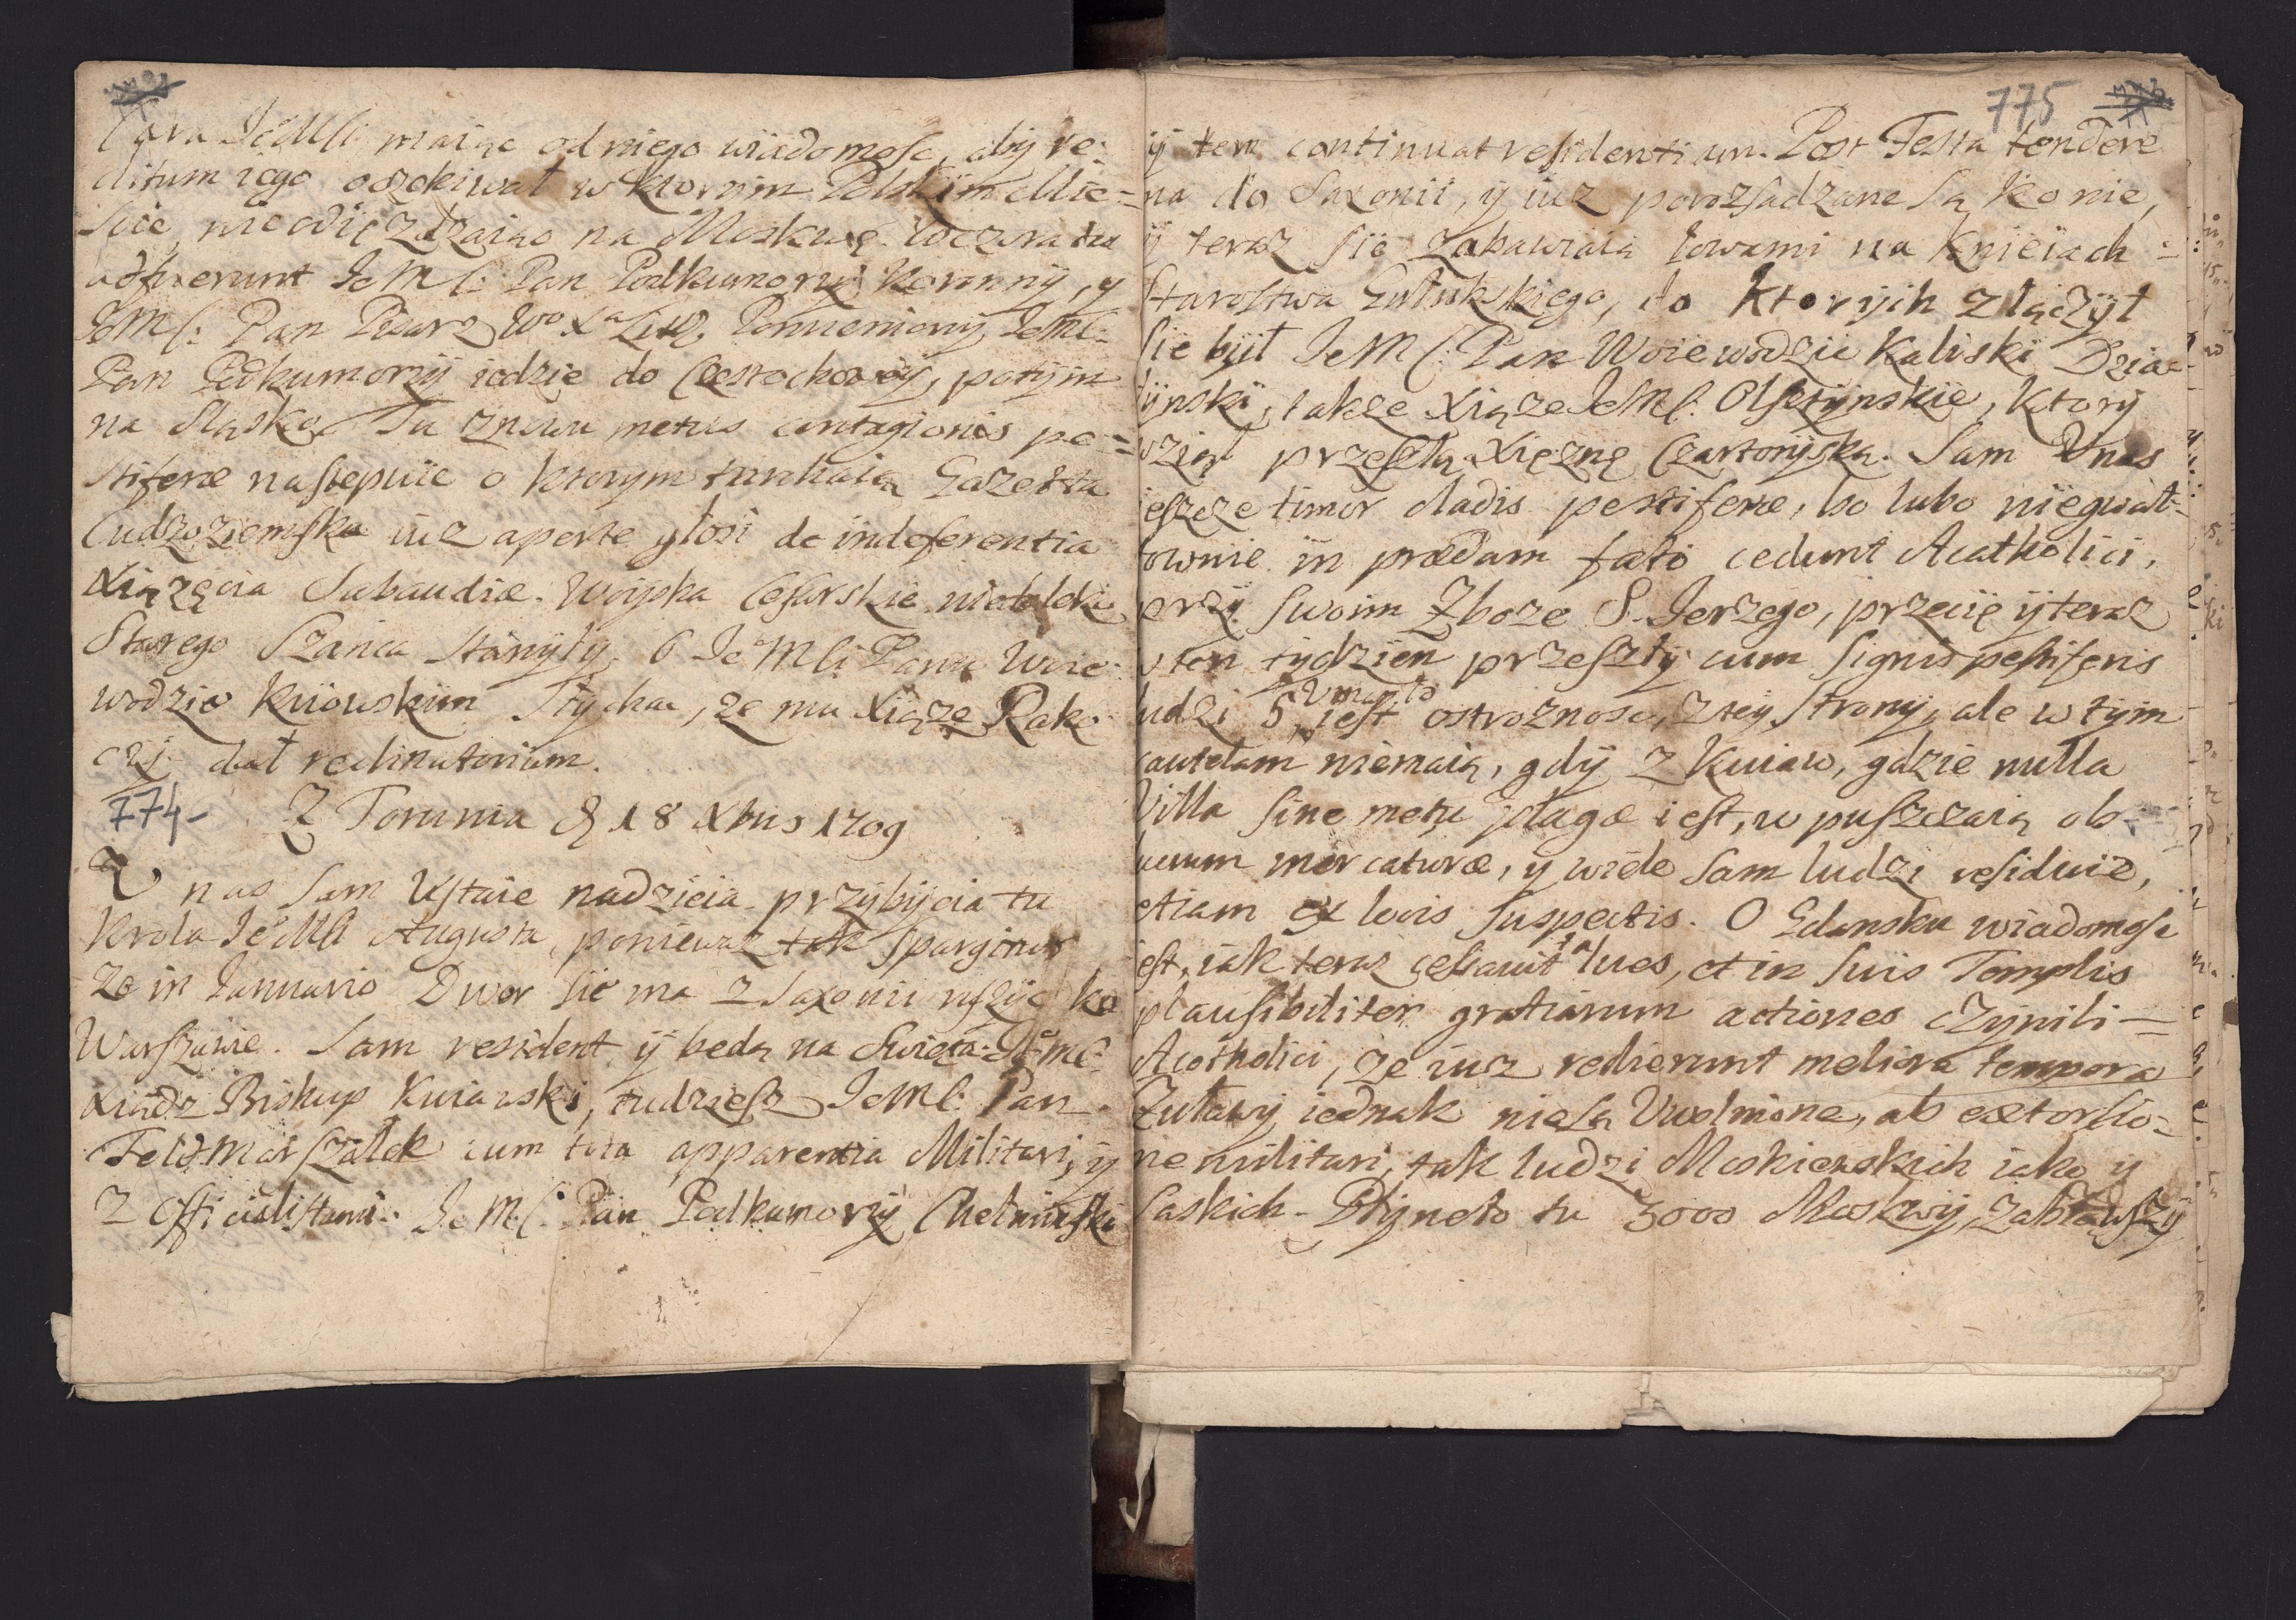 Cara JeMći maiąc od niego wiadomosc, aby re:
ditum iego oczekiwał w ktorym Polskim Mie=
scie, nie odiezdzaiąc na Moskwę. Wczora tu
adfuerunt JeMć: Pan Podkumorzy Koronny, y
JeMć: Pan Pisarz Wo Xa Litt. Pomieniony JeMć:
Pan Podkumorzy iedzie do Czestochowy, potym
na Sląsko. Tu znowu metus contagionis pe=
stiferæ nastepuie o ktorym
Cudzoziemska iuz aperte głosi de indeferentia
Xiązęcia Sabaudiæ. Woyska Cesarskie niedaleko
Starego Szanca stanęły. O JeMći Panu Woie:
wodzie Kiiowskim słychac, ze mu Xiąze Rako
czy dał reclinatorium.
774- Z Torunia d 18 Xbris 1709
U nas sam Ustaie nadzieia przybycia tu
Krola JeMći Augusta, poniewaz tak spargitur
ze in Januario Dwor sie ma z Saxonii ruszyc ku
Warszawie. Sam resident y bedą na Swięta JeMć:
Xiądz Biskup Kuiawski, tudziesz JeMć: Pan
Feldmarszałek cum tota apparentia Militari, y
z officialistami. JeMć: Pan Podkumorzy Chełminski
775
y tem continuat residentium. Post Festa tendere
na do Saxonii, y iuz porozsadzane są konie,
y teraz sie zabawiaią łowami na Knieiach =
Starostwa Gulubskiego, do ktorych złączył
sie był JeMć: Pan Woiewodzic Kaliski Dzia=
łynski, takze Xiąze JeMć: Olsztynskie, ktory
wziął przeszłą Xięznę Czartoryską. Sam Unas
ieszcze timor cladis pestiferæ, bo lubo niegwał=
townie in prædam fato cedunt Acatholici,
przy swoim Zboze S. Jerzego, przecię y teraz
w ten tydzien przeszły cum signis pestiferis
ludzi 5, Umarło iest ostroznosc, z tey strony, ale w tym
cautelam niemaią, gdy z Kuiaw, gdzie nulla
Villa sine metu plagæ iest, wpuszczaią ob
uerum mercaturæ, y wiele sam ludzi residuie,
etiam ex locis suspectis. O Gdansku wiadomosc
est, iak teraz cessauit lues, et in suis Templis
plausibiliter gratiarum actiones czynili =
Acatholici, ze iusz redierunt meliora tempora
Zuławy iednak niesą Uwolnione, ab extorsio=
ne militari, tak ludzi Moskiewskich iako y
Saskich. Płyneło tu 3000 Moskwy, zabrawszy